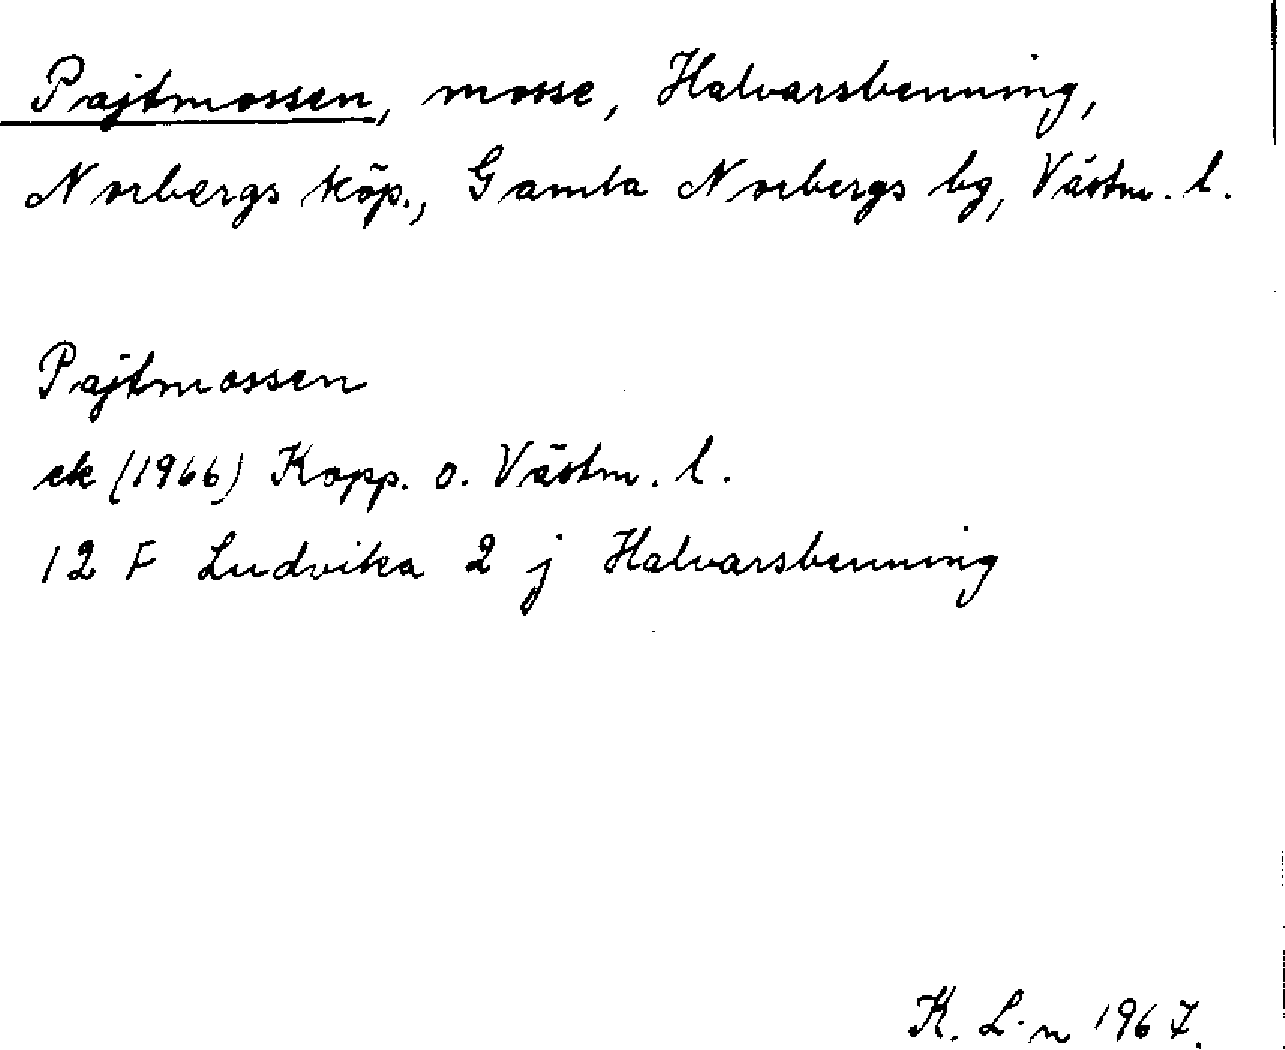 Pajtmossen, mosse, Halvarsbenning,
Norbergs köp., Gamla Norbergs bg, Västm. l.
Pajtmossen
ek (1966) Kopp. o. Västm. l.
12 F Ludvika 2 j Halvarsbenning
K. L-n 1967.